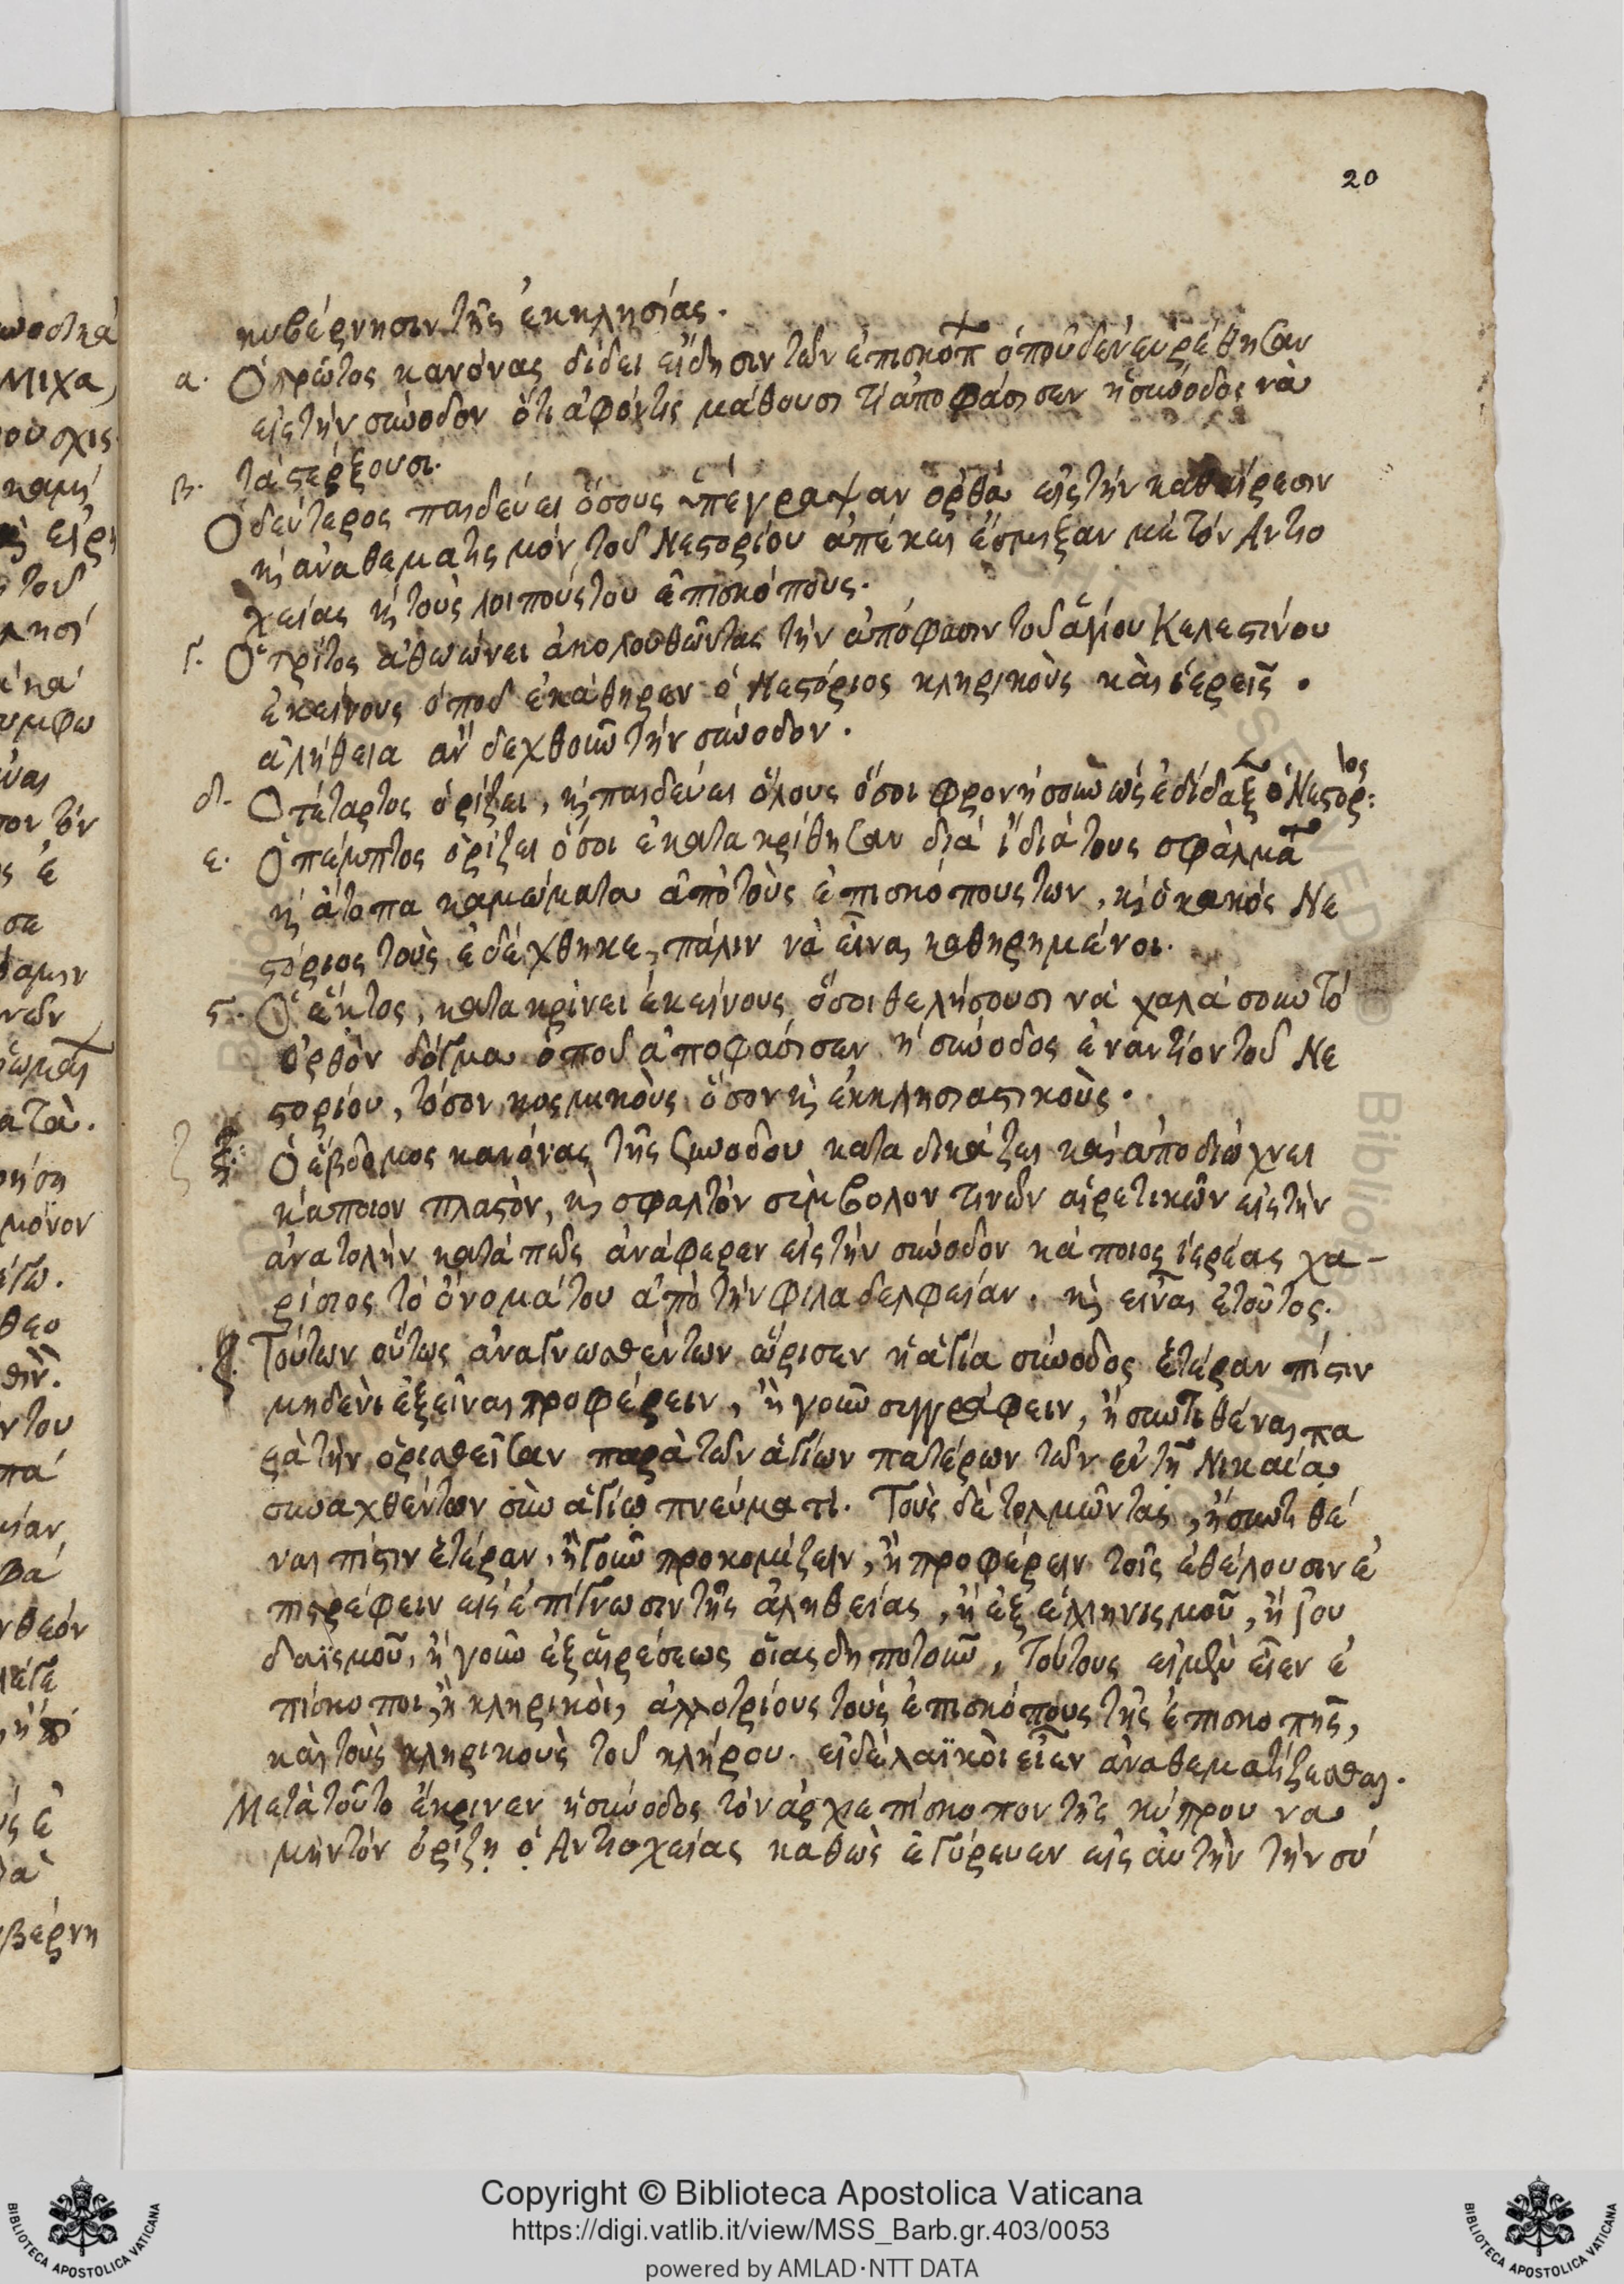 20
κυβέρνησιν τῆς ἐκκλησίας.
α. Ὁ πρῶτος κανόνας δίδει εἴδησιν τῶν ἐπισκόπ ὁποῦ δὲν εὑρέθησαν
εἰς τὴν σύνοδον ὅτι ἀφόντις μάθουσι τί ἀποφάσισεν ἡ σύνοδος νὰ
τὰ στέρξουσι.
β. Ὁ δεύτερος παιδεύει ὅσους ὑπέγραψαν ὀρθὰ εἰς τὴν καθαίρεσιν
κὶ ἀναθεματισμόν τοῦ Νεστορίου ἀπέκει ἔσμιξαν μὲ τόν Ἀντιο
χείας κὶ τοὺς λοιποὺς του ἐπισκόπους.
γ. Ὁ τρίτος ἀθωώνει ἀκολουθῶντας τὴν ἀπόφασιν τοῦ ἁγίου Κελεστίνου
ἐκείνους ὁποῦ ἐκάθηρεν ὁ Νεστόριος κληρικοὺς καὶ ἱερεῖς.
ἀλήθεια ἂν δεχθοῦν τὴν σύνοδον.
δ. Ὁ τέταρτος ὁρίζει, κὶ παιδεύει ὅλους ὅσοι φρονήσουν ὡς ἐδίδαξ ὁ Νεστόριος
ε. Ὁ πέμπτος ὁρίζει ὅσοι ἐκατακρίθησαν διὰ ἴδιά τους σφάλματ
κὶ ἄτοπα καμώματα ἀπὸ τοὺς ἐπισκόπους των, κὶ ὁ κακός Νε
στόριος τοὺς ἐδέχθηκε, πάλιν νὰ εἶναι καθηρημένοι.
ς. Ὁ ἕκτος, κατακρίνει ἐκείνους ὅσοι θελήσουσι νὰ χαλάσουν τὸ
ὀρθὸν δόγμα ὁποῦ ἀποφάσισεν ἡ σύνοδος ἐναντίον τοῦ Νε
στορίου, τόσον κοσμικοὺς ὅσον κὶ ἐκκλησιαστικοὺς.
ζ ζ. Ὁ ἕβδομος κανόνας τῆς συνοδου καταδικάζει καὶ ἀποδιώχνει
κάποιον πλαστὸν, κὶ σφαλτόν σύμβολον τινῶν αἱρετικῶν εἰς τὴν
ἀνατολὴν κατά πῶς ἀνάφερεν εἰς τὴν σύνοδον κάποιος ἱερέας χα-
ρίσιος τὸ ὄνομά του ἀπὸ τὴν Φιλαδελφείαν. κὶ εἶναι ἐτοῦτος.
Τούτων οὕτως ἀναγνωσθέντων ὥρισεν ἡ ἁγία σύνοδος ἑτέραν πίστιν
μηδενὶ ἐξεῖναι προφέρειν, ἢ γοῦν συγγράφειν, ἢ συντιθέναι πα
ρὰ τὴν ὁρισθεῖσαν παρὰ τῶν ἁγίων πατέρων τῶν ἐν τῇ Νικαίᾳ
συναχθέντων σὺν ἁγίῳ πνεύματι. Τοὺς δὲ τολμῶντας, ἢ συντιθέ
ναι πίστιν ἑτέραν, ἢ γοῦν προκομίζειν, ἢ προφέρειν τοῖς ἐθέλουσιν ἐ
πιστρέφειν εἰς ἐπίγνωσιν τῆς ἀληθείας, ἢ ἐξ ἑλληνισμοῦ, ἢ ἰου
δαϊσμοῦ, ἢ γοῦν ἐξ αἱρέσεως οἵας δηποτοῦν, τούτους εἰ μὲν εἶεν ἐ
πίσκοποι, ἢ κληρικοὶ, ἀλλοτρίους τοὺς ἐπισκόπους τῆς ἐπισκοπῆς,
καὶ τοὺς κληρικοὺς τοῦ κλήρου. εἰ δὲ λαϊκὸι εἶεν ἀναθεματίζεσθαι.
Μετὰ τοῦτο ἔκρινεν ἡ σύνοδος τὸν ἀρχιεπίσκοπον τῆς κύπρου να
μὴν τὸν ὁρίζῃ ὁ Ἀντιοχείας καθὼς ἐγύρευεν εἰς αὐτὴν τὴν σύ
Copyright © Biblioteca Apostolica Vaticana
https://digi.vatlib.it/view/MSS_Barb.gr.403/0053
powered by AMLAD·NTT DATA
BIBLIOTECA APOSTOLICA VATICANA
BIBLIOTECA APOSTOLICA VATICANA